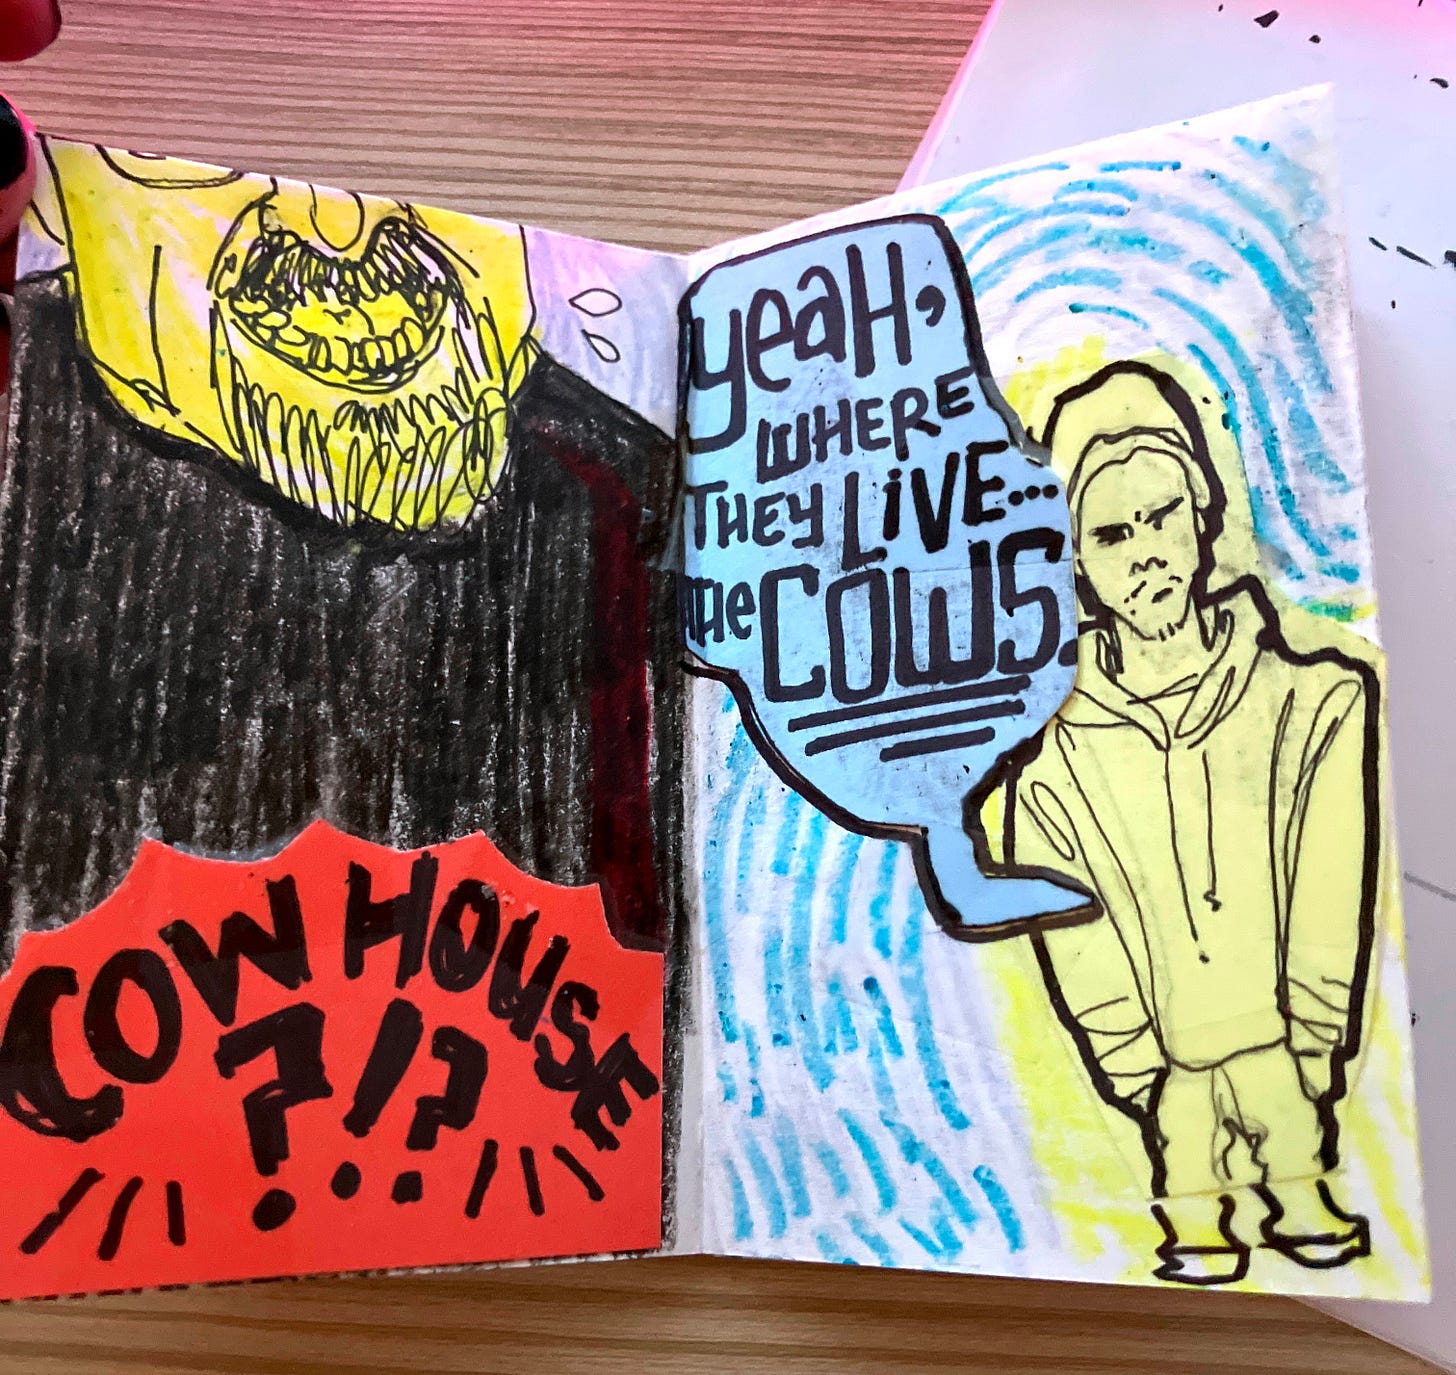 COW HOUSE
?!?
yeaH,
WHERE
THEY LiVE...
THe COWS.